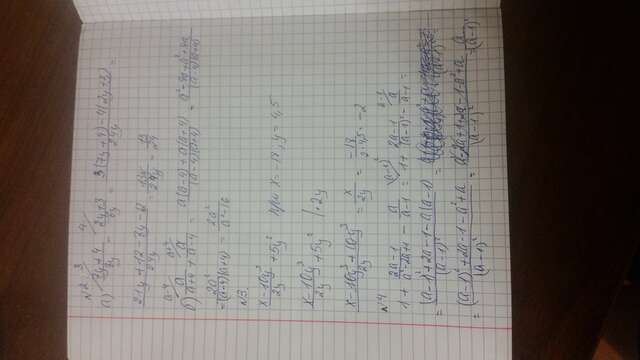 №2
а) (7y+4)/8y ^3 − (2y+3)/6y ^4 = (3(7y+4)−4(2y+3))/24y =
(21y+12−8y−12)/24y = 13y/24y = 13/24
б) a/(a+4) ^a-4 + a/(a-4) ^a+4 = (a(a-4)+a(a+4))/((a-4)(a+4)) = (a²-4a+a²+4a)/((a-4)(a+4))
= 2a²/((a-4)(a+4)) = 2a²/(a²-16)
№3.
(x-10y³)/2y + 5y² при x=-18, y=4,5
(x-10y³)/2y + 5y² |·2y
(x-10y³+10y³)/2y = x/2y = -18/(2·4,5) = -2
№4
1 + (2a-1)/(a²-2a+1) − a/(a-1) = 1 ^(a-1)² + (2a-1)/(a-1)² − a/(a-1) ^a-1 =
= ((a-1)²+2a-1-a(a-1))/(a-1)² =
= ((a-1)²+2a-1-a²+a)/(a-1)² = (a²-2a+1+2a-1-a²+a)/(a-1)² = a/(a-1)²